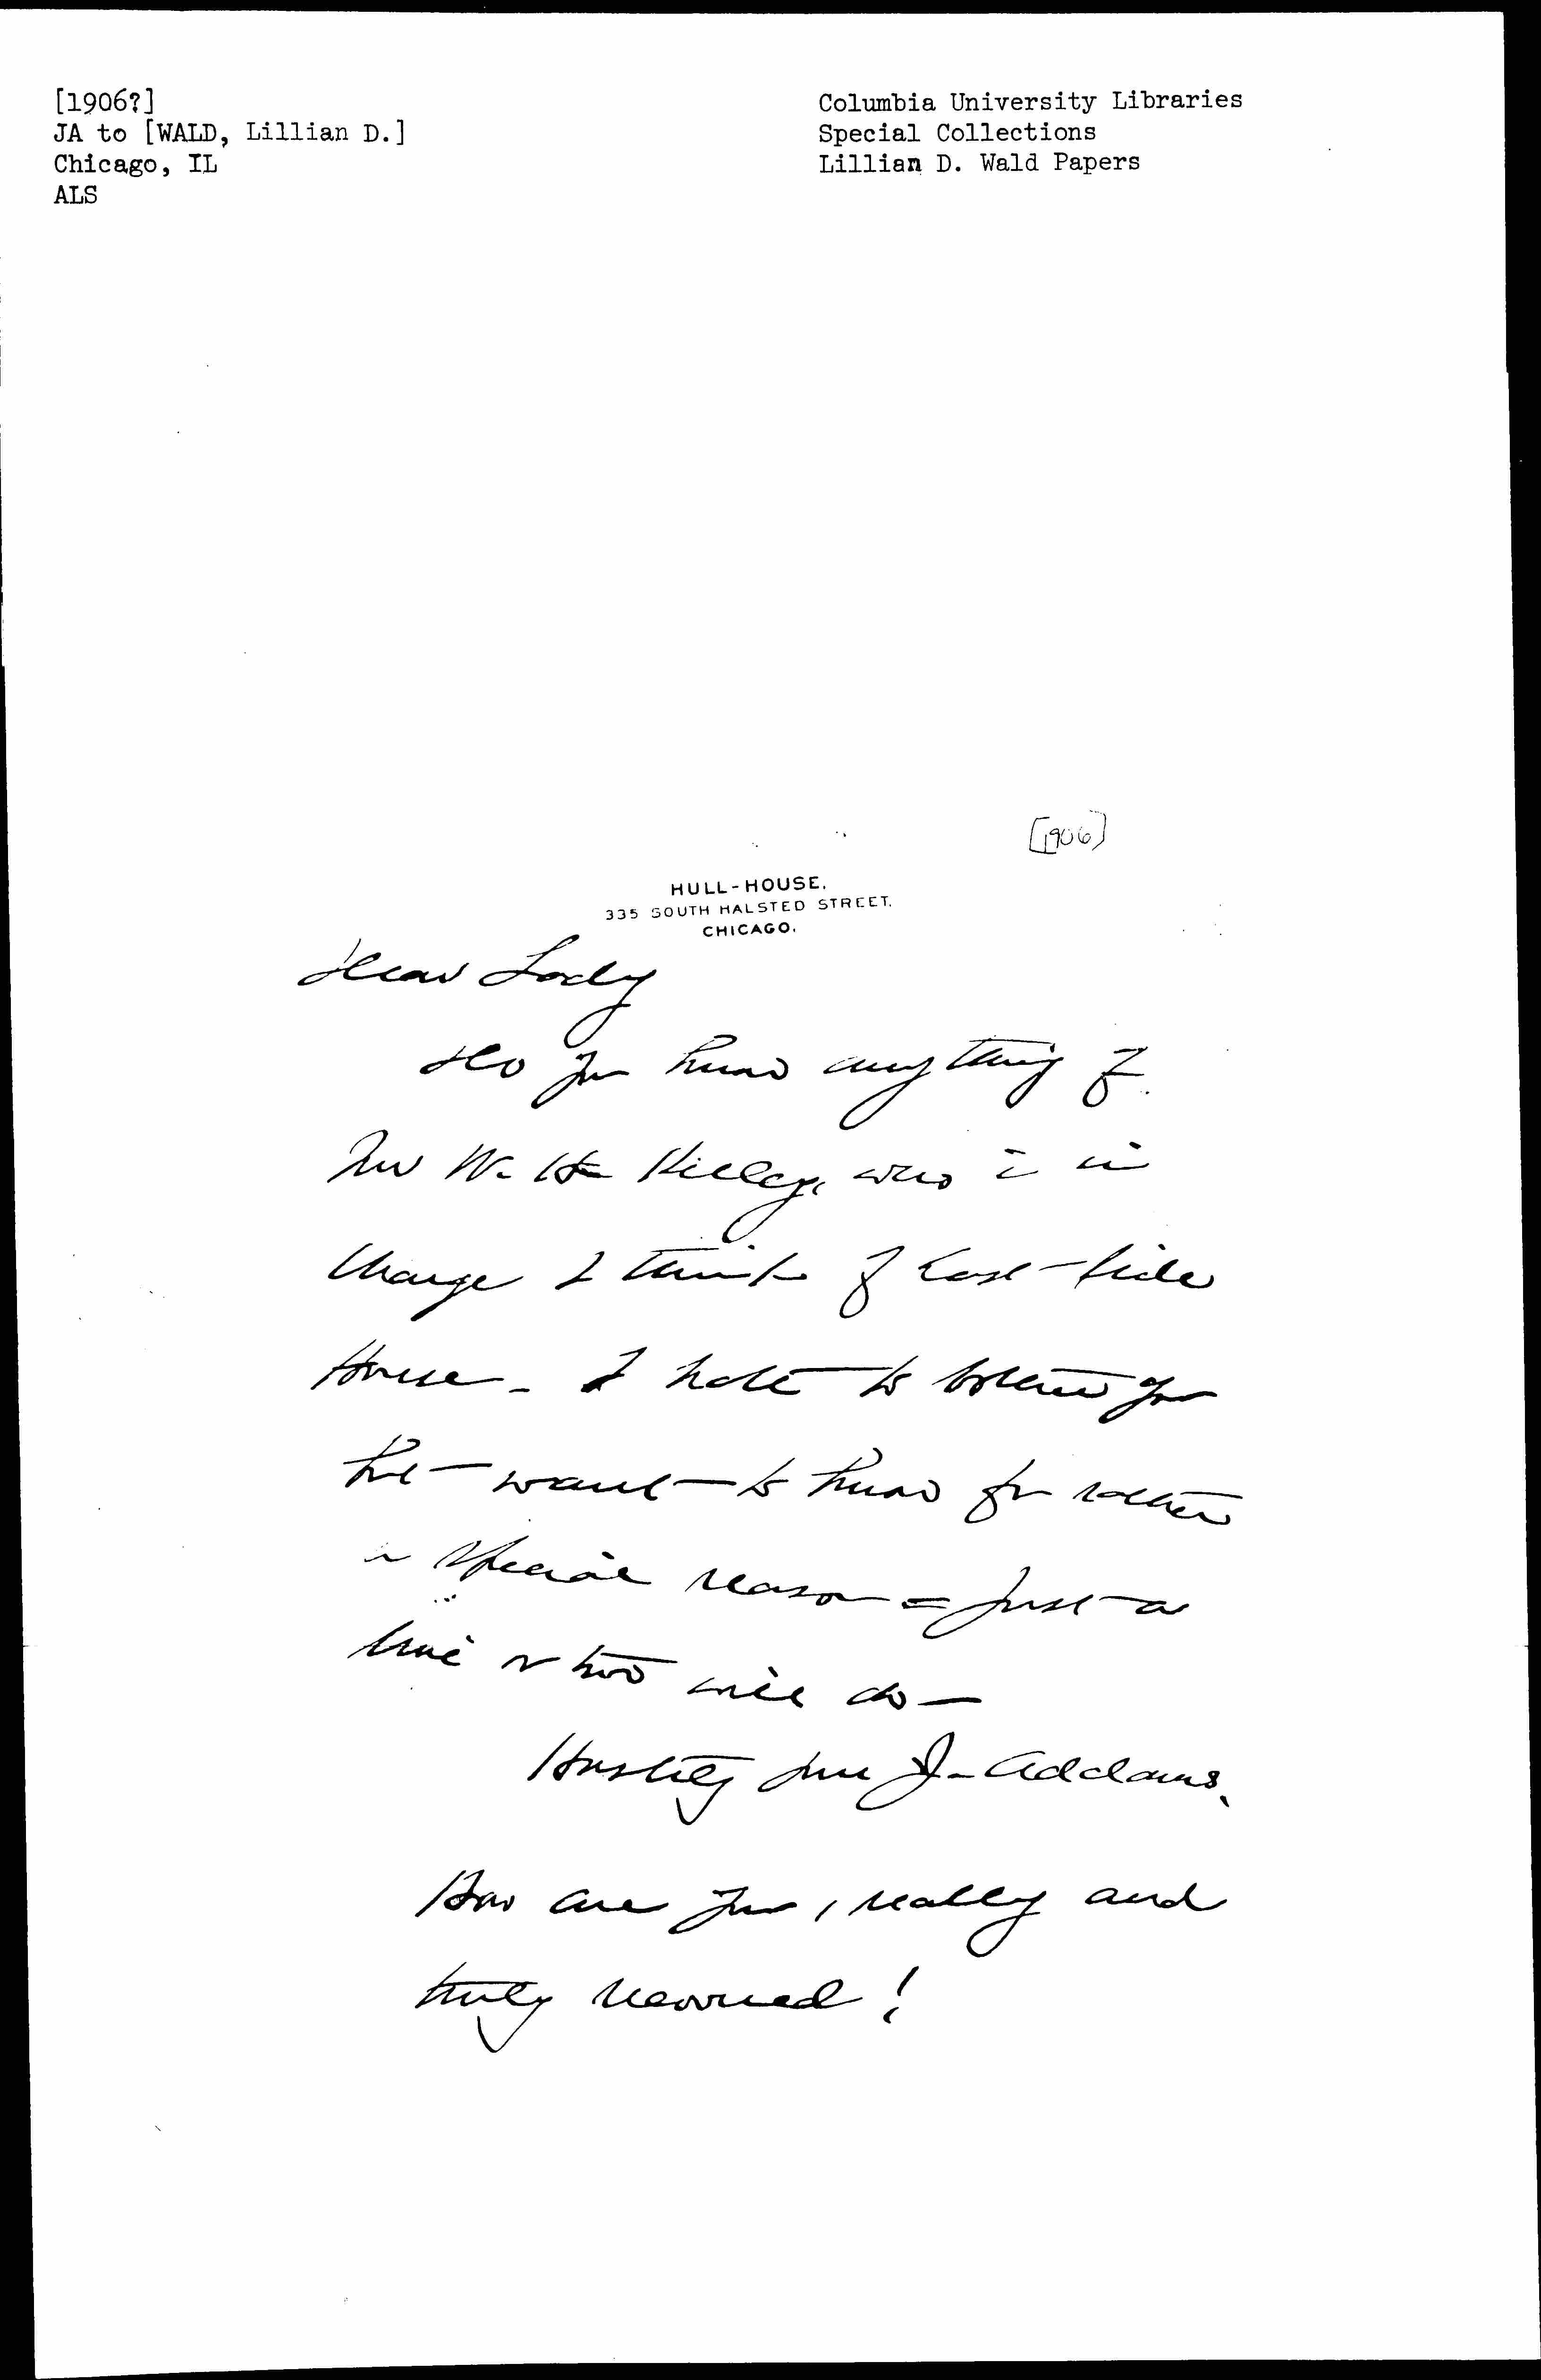 [1906?]
JA to [WALD, Lillian D.]
Chicago, IL
ALS
Columbia University Libraries
Special Collections
Lillian D. Wald Papers
[1906]
HULL-HOUSE,
335 SOUTH HALSTED STREET,
CHICAGO.
Dear Lady
Do you know anything of
W. H. Kelley, who is in
charge I think of East-Side
House - I hate to bother you
but want to know for rather
a special reason = just a
line or two will do -
Hastily yours J- Addams.
How are you, really and
truly